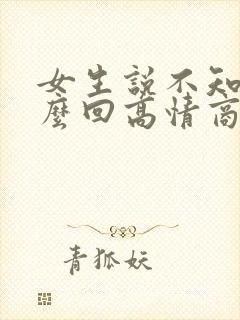 女生說不知
麼回高情商
青狐妖